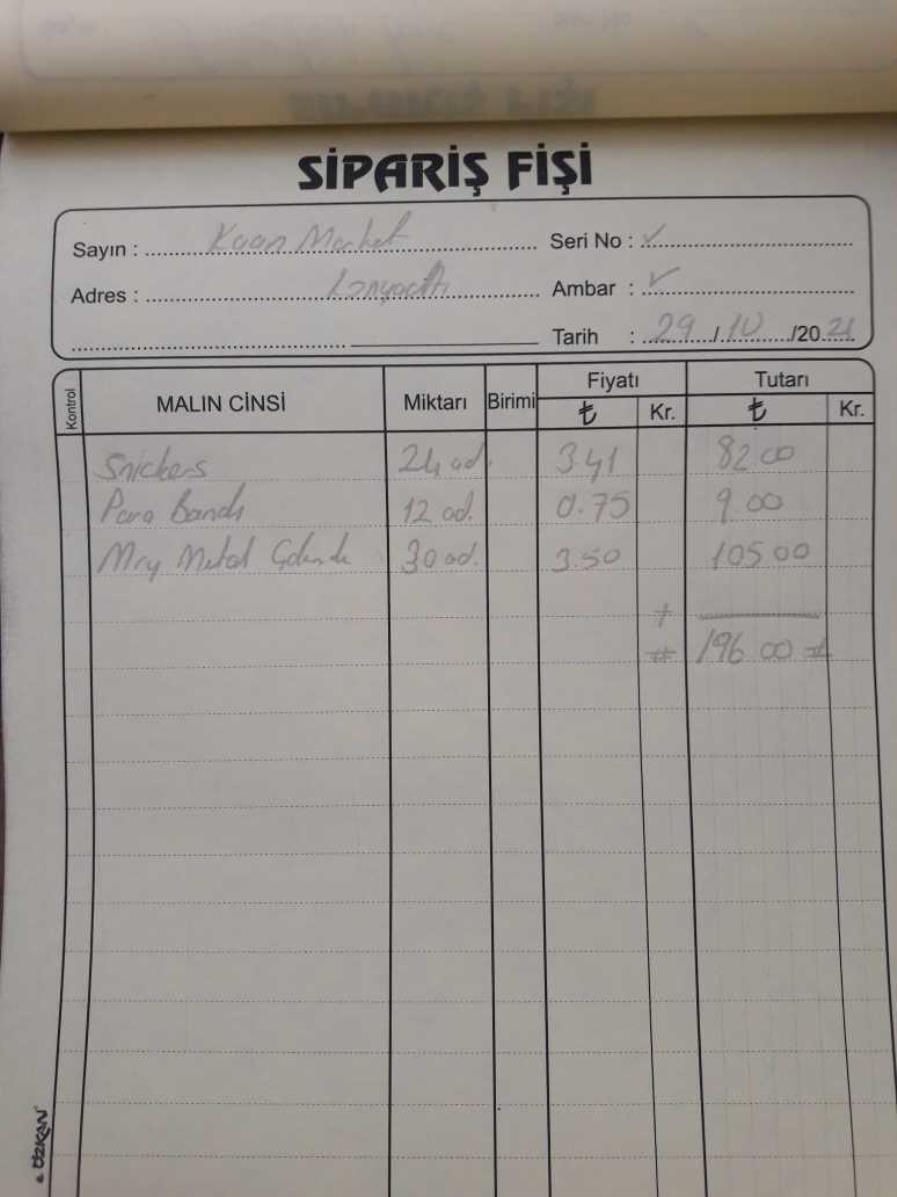 SİPARİŞ FİŞİ
Sayın : Kaan Market Seri No : ✓
Adres : Ambar : ✓
Tarih : 29/10/2021
Kontrol MALIN CİNSİ Miktarı Birimi Fiyatı Tutarı
₺ Kr. ₺ Kr.
Snickers 24 ad. 3.41 82.00
Para Bandı 12 ad. 0.75 9.00
Mry Metal 30 ad. 3.50 105.00
+
# 196.00 #
ÖZKAN